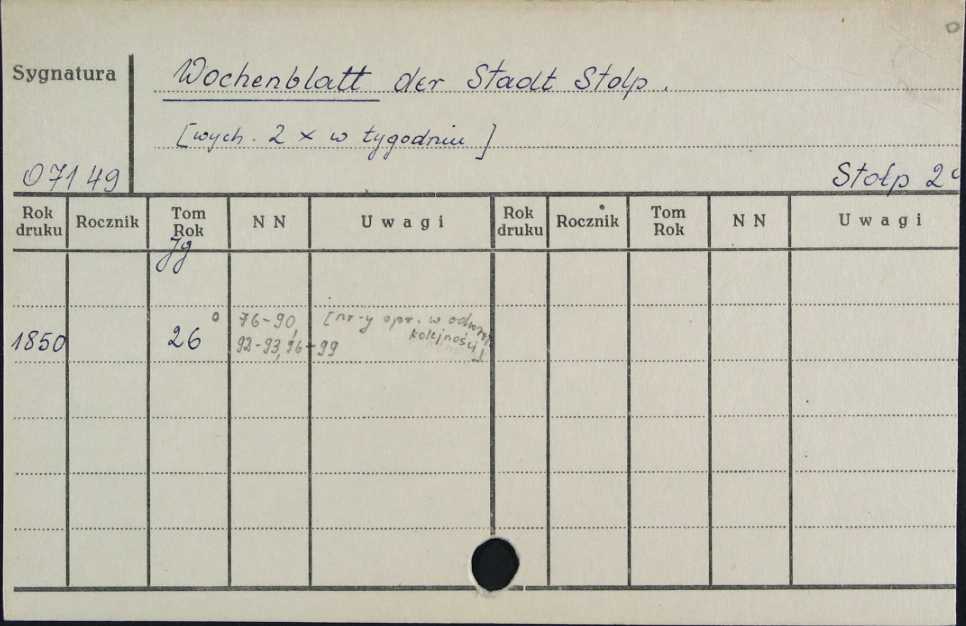 Sygnatura
Wochenblatt der Stadt Stolp.
[wych. 2 x w tygodniu]
07149
Stolp 2°
Rok druku Rocznik Tom Rok NN Uwagi Rok druku Rocznik Tom Rok NN Uwagi
Jg
1850 26 76-90, [nr-y opr. w
kolejności]
92-93, 96-99